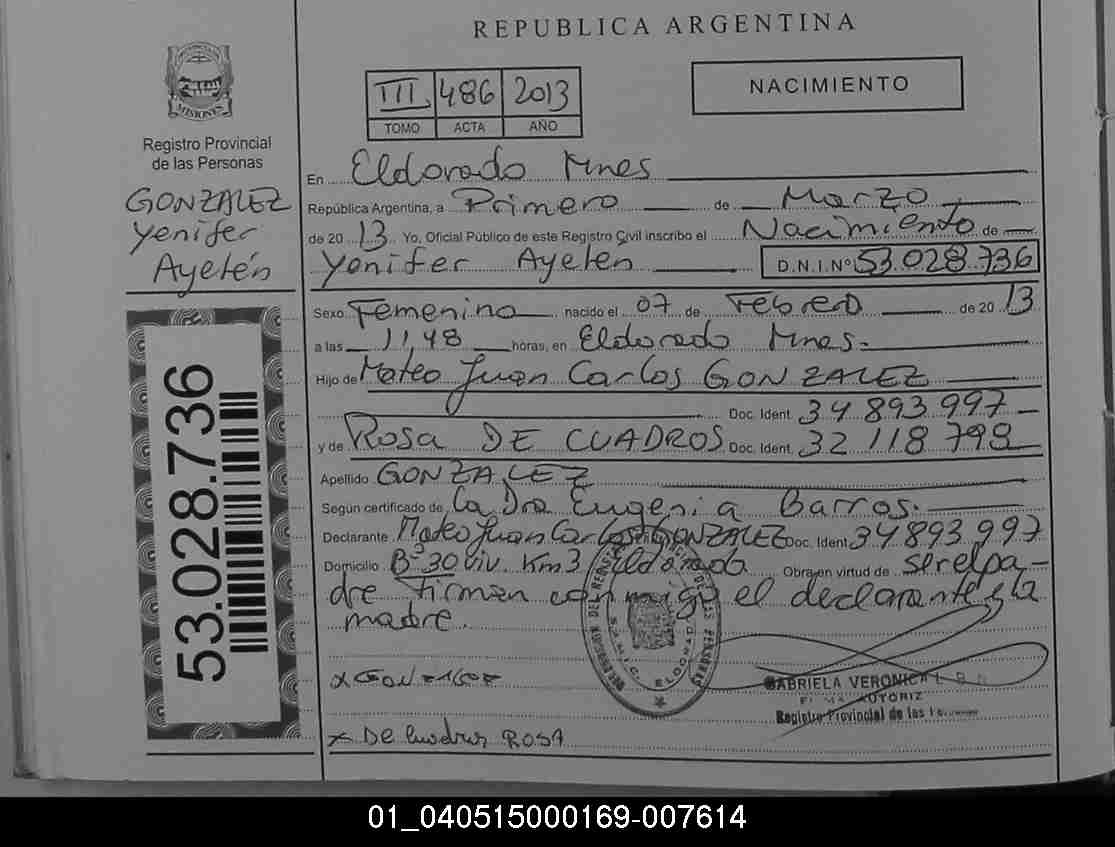 REPUBLICA ARGENTINA
MISIONES
Registro Provincial
de las Personas
GONZALEZ
Yenifer
Ayelén
53.028.736
III 486 2013
TOMO ACTA AÑO
NACIMIENTO
En Eldorado Mnes
República Argentina, a Primero de Marzo
de 2013 Yo, Oficial Público de este Registro Civil inscribo el Nacimiento de
Yenifer Ayelen D.N.I.Nº 53.028.736
Sexo Femenino nacido el 07 de Febrero de 2013
a las 11,48 horas, en Eldorado Mnes.
Hijo de Mateo Juan Carlos GONZALEZ
Doc. Ident. 34 893 997
y de ROSA DE CUADROS Doc. Ident. 32 118 798
Apellido GONZALEZ
Según certificado de La Dra Eugenia Barros.
Declarante Mateo Juan Carlos GONZALEZ Doc. Ident. 34.893.997
Domicilio Bº 30 viv. Km3 Eldorado Obra en virtud de ser el pa-
dre Firman conmigo el declarante y la
madre.
x GONZALEZ
GABRIELA VERONICA
Registro Provincial de las
x De Cuadros ROSA
01_040515000169-007614